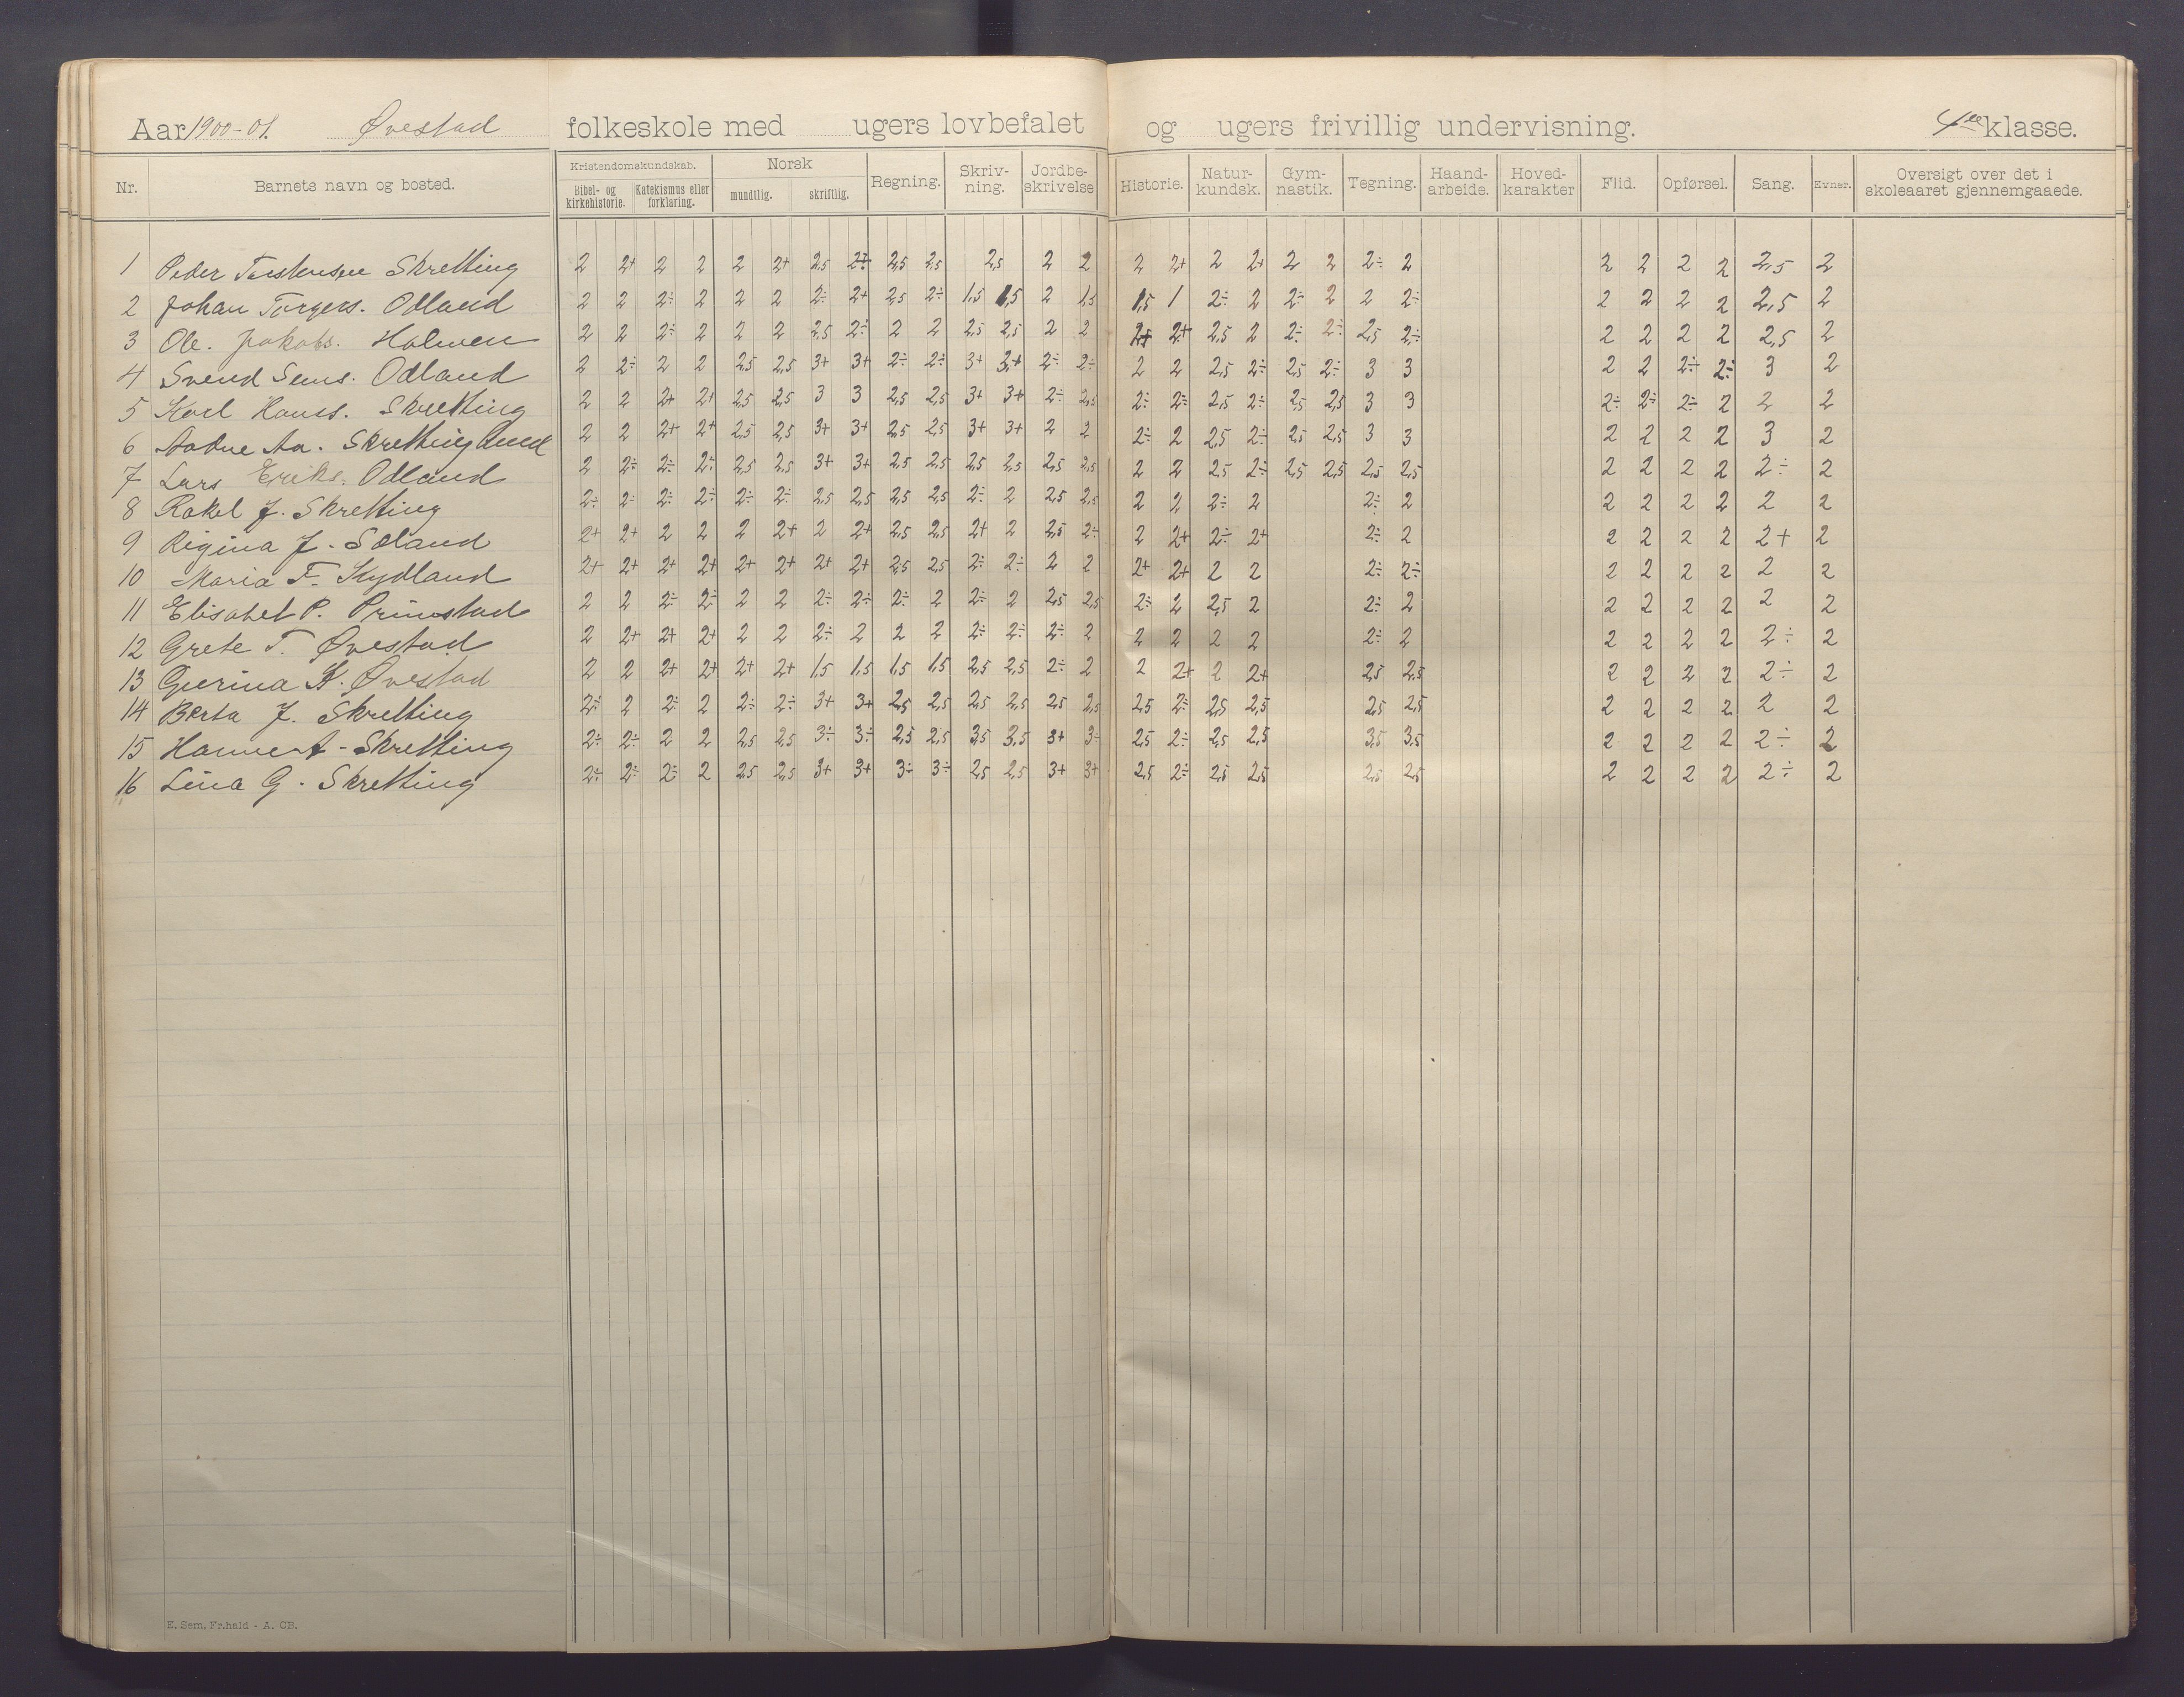 Aar 1900-01. Øvestad folkeskole med ugers lovbefalet og ugers frivillig undervisning. 4de klasse.
Nr. Barnets navn og bosted. Kristendomskundskab. Bibel- og kirkehistorie. Katekismus eller forklaring. Norsk mundtlig. skriftlig. Regning. Skriv-ning. Jordbe-skrivelse Historie. Natur-kundsk. Gym-nastik. Tegning. Haand-arbeide. Hoved-karakter Flid. Opførsel. Sang. Evner. Oversigt over det i skoleaaret gjennemgaaede.
1 Peder Torstensen Skretting 2 2+ 2 2 2 2+ 2,5 2÷ 2,5 2,5 2,5 2 2 2 2+ 2 2+ 2 2 2÷ 2 2 2 2 2 2,5 2
2 Johan Torgers. Odland 2 2 2÷ 2 2 2 2÷ 2+ 2,5 2÷ 1,5 1,5 2 1,5 1,5 1 2÷ 2 2÷ 2 2 2÷ 2 2 2 2 2,5 2
3 Ole. Jakobs. Holmen 2 2 2÷ 2 2 2 2,5 2÷ 2 2 2,5 2,5 2 2 2+ 2+ 2,5 2 2÷ 2÷ 2,5 2÷ 2 2 2 2 2,5 2
4 Svend Sems. Odland 2 2÷ 2 2 2,5 2,5 3+ 3+ 2÷ 2÷ 3+ 3+ 2÷ 2÷ 2 2 2,5 2÷ 2,5 2÷ 3 3 2 2 2÷ 2÷ 3 2
5 Karl Hanss. Skretting 2 2 2+ 2+ 2,5 2,5 3 3 2,5 2,5 3+ 3+ 2÷ 2,5 2÷ 2÷ 2,5 2÷ 2,5 2,5 3 3 2÷ 2÷ 2÷ 2 2 2
6 Aadne Aa. Skrettingland 2 2 2+ 2+ 2,5 2,5 3+ 3+ 2,5 2,5 3+ 3+ 2 2 2÷ 2 2,5 2÷ 2,5 2,5 3 3 2 2 2 2 3 2
7 Lars Eriks. Odland 2 2÷ 2÷ 2÷ 2,5 2,5 3+ 3+ 2,5 2,5 2,5 2,5 2,5 2,5 2 2 2,5 2÷ 2,5 2,5 2,5 2,5 2 2 2 2 2÷ 2
8 Rakel J. Skretting 2÷ 2÷ 2÷ 2÷ 2÷ 2÷ 2,5 2,5 2,5 2,5 2÷ 2 2,5 2,5 2 2 2÷ 2 2÷ 2 2 2 2 2 2 2
9 Regina J. Søland 2+ 2+ 2 2 2 2+ 2 2+ 2,5 2,5 2+ 2 2,5 2÷ 2 2+ 2÷ 2+ 2÷ 2 2 2 2 2 2+ 2
10 Maria F. Kydland 2+ 2+ 2+ 2+ 2+ 2+ 2+ 2+ 2,5 2,5 2÷ 2÷ 2 2 2+ 2+ 2 2 2÷ 2÷ 2 2 2 2 2 2
11 Elisabet P. Primstad 2 2 2÷ 2÷ 2 2 2÷ 2÷ 2÷ 2 2÷ 2 2,5 2,5 2÷ 2 2,5 2 2÷ 2 2 2 2 2 2 2
12 Grete T. Øvestad 2 2+ 2+ 2+ 2 2 2÷ 2 2 2 2÷ 2÷ 2÷ 2 2 2 2 2 2÷ 2 2 2 2 2 2÷ 2
13 Gurina K. Øvestad 2 2 2+ 2+ 2+ 2+ 1,5 1,5 1,5 1,5 2,5 2,5 2÷ 2 2 2+ 2 2+ 2,5 2,5 2 2 2 2 2÷ 2
14 Berta J. Skretting 2÷ 2 2÷ 2 2÷ 2÷ 3+ 3+ 2,5 2,5 2,5 2,5 2,5 2,5 2,5 2÷ 2,5 2,5 2,5 2,5 2 2 2 2 2 2
15 Hanne A - Skretting 2÷ 2÷ 2 2 2,5 2,5 3÷ 3÷ 2,5 2,5 3,5 3,5 3+ 3÷ 2,5 2÷ 2,5 2,5 3,5 3,5 2 2 2 2 2÷ 2
16 Lina G. Skretting 2÷ 2÷ 2÷ 2 2,5 2,5 3+ 3+ 3÷ 3÷ 2,5 2,5 3+ 3+ 2,5 2÷ 2,5 2,5 2,5 2,5 2 2 2 2 2÷ 2
E. Sem, Fr.hald - A. CB.